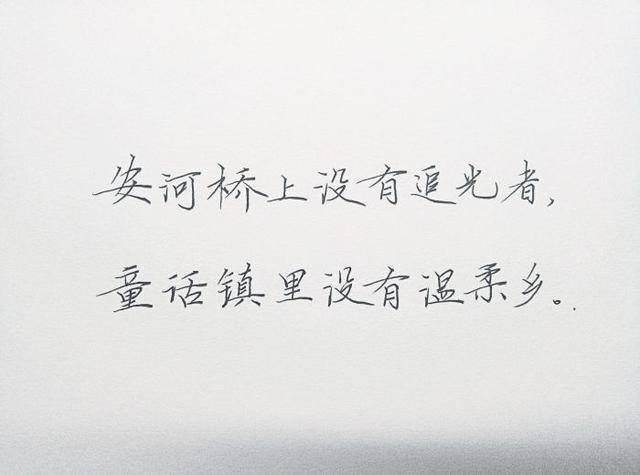 安河桥上没有追光者,
童话镇里没有温柔乡。